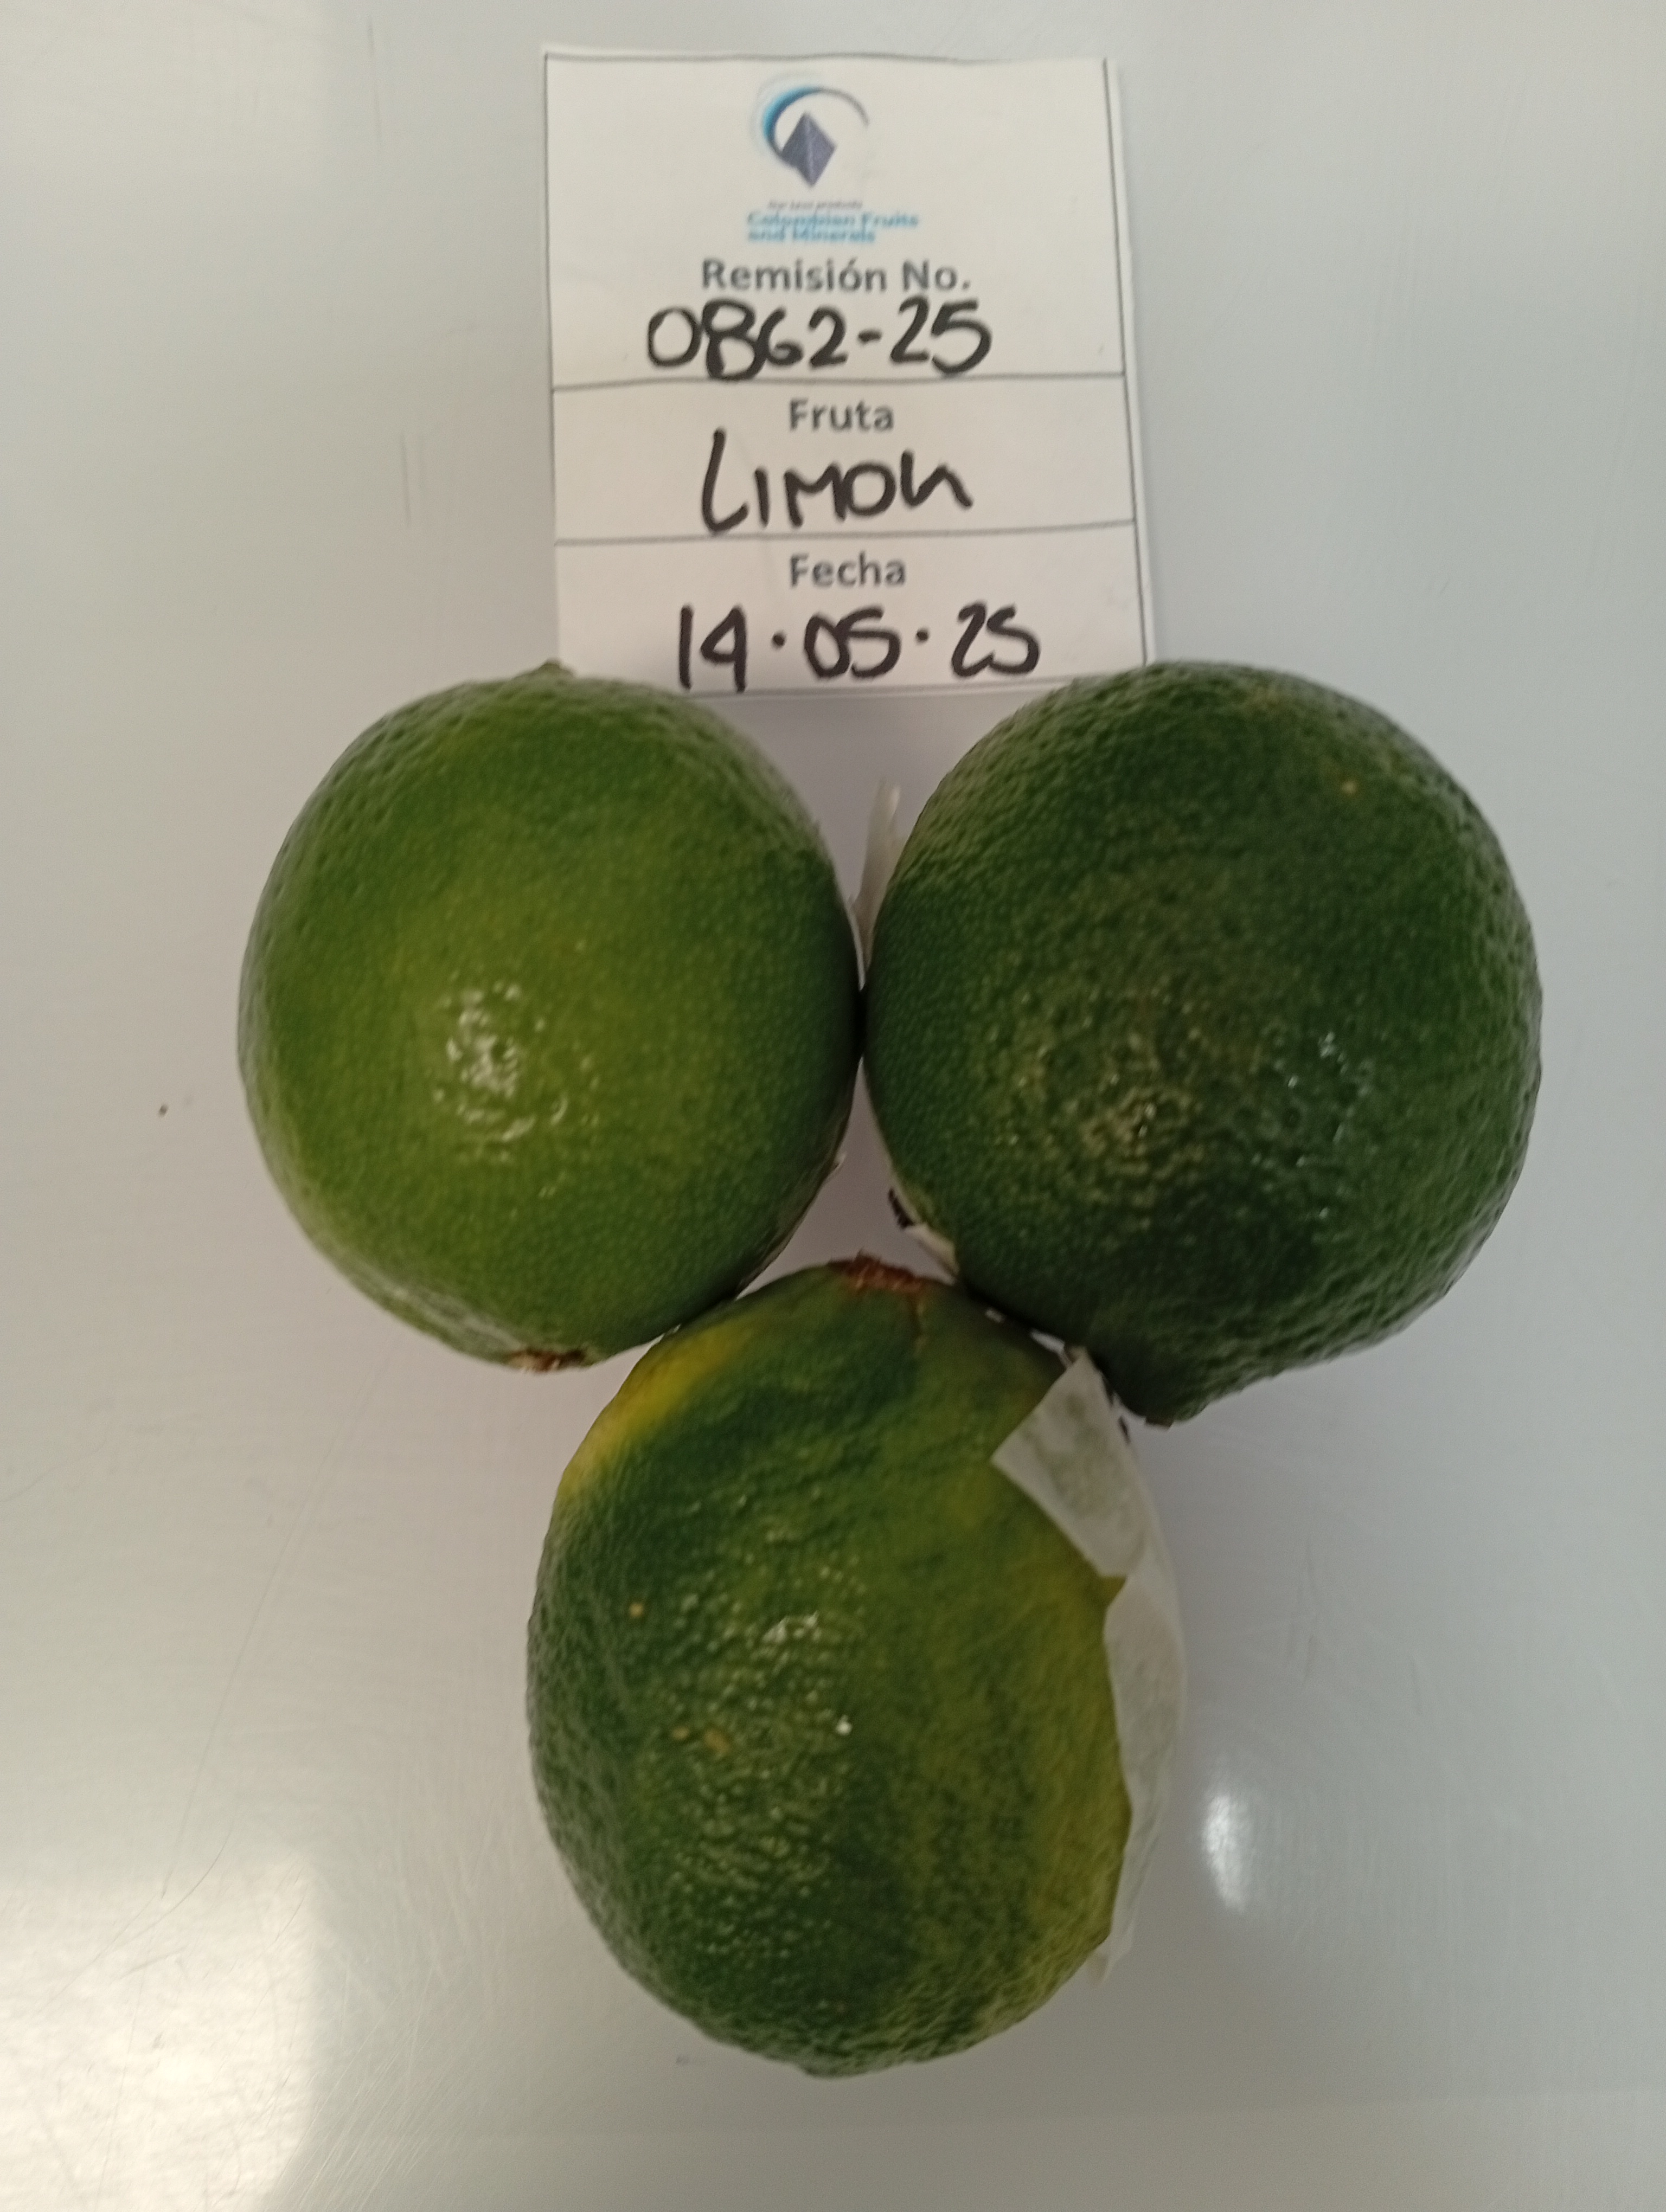 Colombian Fruits
and Minerals
Remisión No.
0862-25
Fruta
LIMON
Fecha
14·05·25